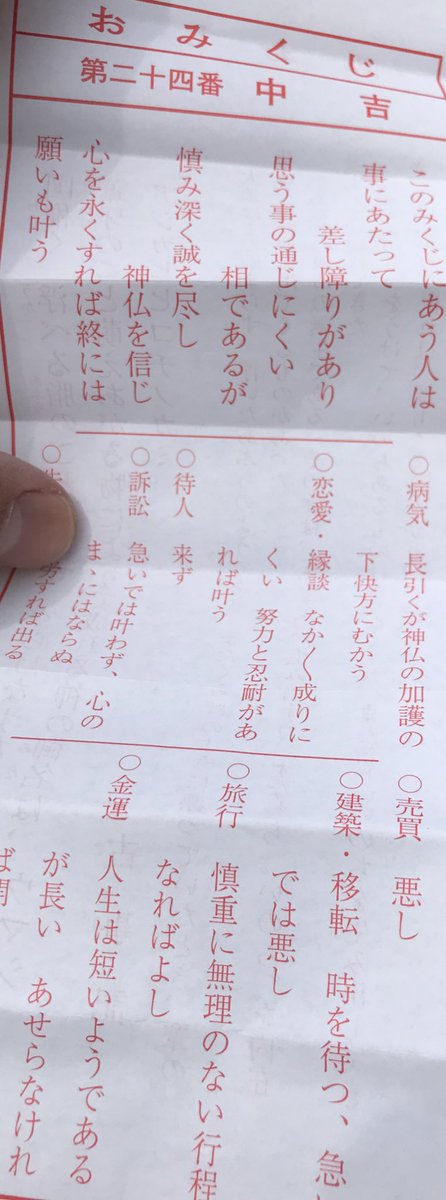 おみくじ
第二十四番 中吉
このみくじにあう人は
事にあたって
差し障りがあり
思う事の通じにくい
相であるが
慎み深く誠を尽し
神仏を信じ
心を永くすれば終には
願いも叶う
○病気 長引くが神仏の加護の
下快方にむかう
○恋愛・縁談 なか〱成りに
くい 努力と忍耐があ
れば叶う
○待人 来ず
○訴訟 急いでは叶わず、心の
まゝにはならぬ
すれば出る
○売買 悪し
○建築・移転 時を待つ、急
では悪し
○旅行 慎重に無理のない行程
なればよし
○金運 人生は短いようである
が長い あせらなけれ